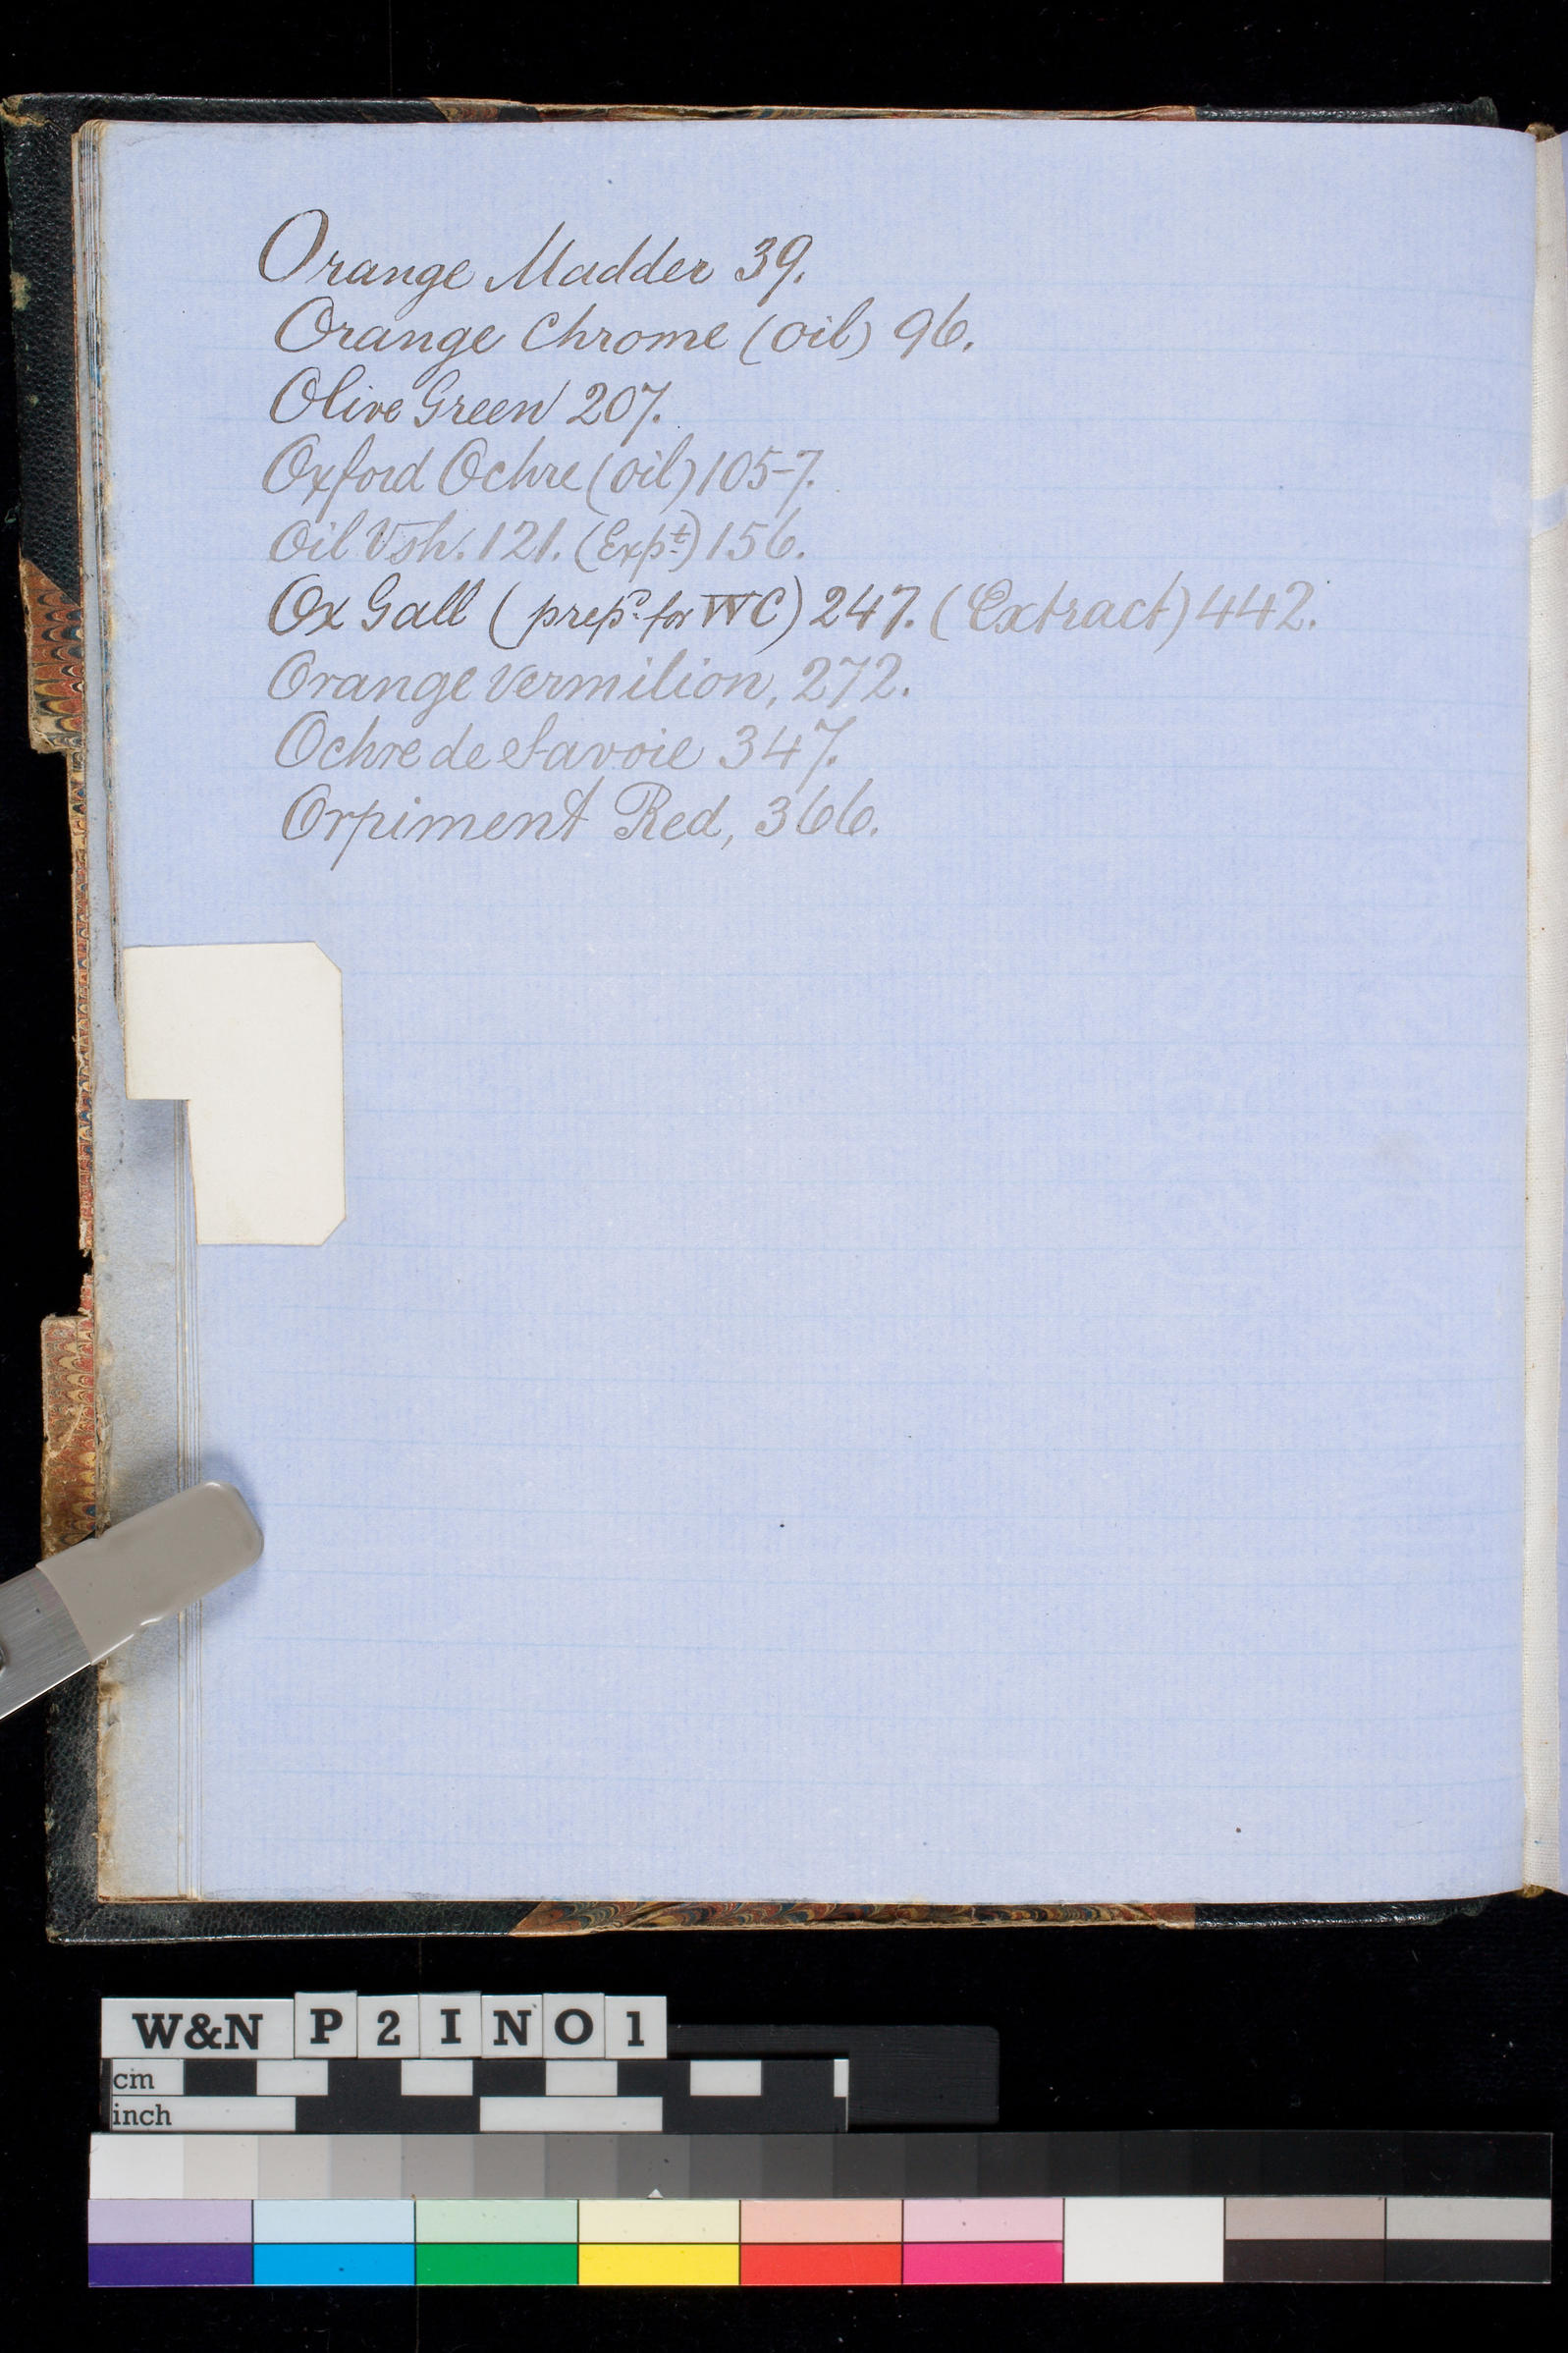 Orange Madder 39.
Orange Chrome (oil) 96.
Olive Green 207.
Oxford Ochre (oil) 105-7.
Oil Vsh. 121. (Expt) 156.
Ox Gall (prepd for WC) 247. (Extract) 442.
Orange Vermilion, 272.
Ochre de Savoie 347.
Orpiment Red, 366.
W&N P2INO1
cm
inch